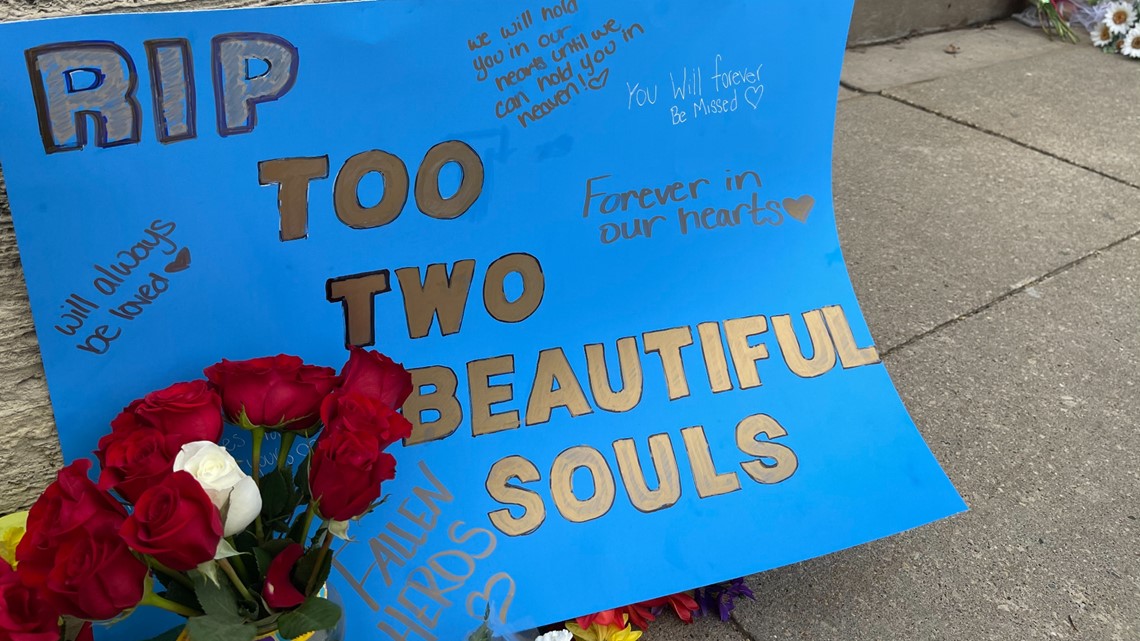 RIP
TOO
TWO
BEAUTIFUL
SOULS
we will hold
you in our
hearts until we
can hold you in
heaven!
You Will forever
Be Missed
Forever in
our hearts
will always
be loved
FALLEN
HEROS